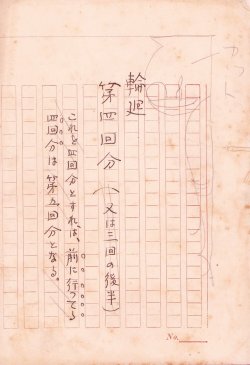 輪廻
第四回分(又は三回の後半)
これを四回分とすれば、前に行つてる
四回分は第五回分となる。
No.